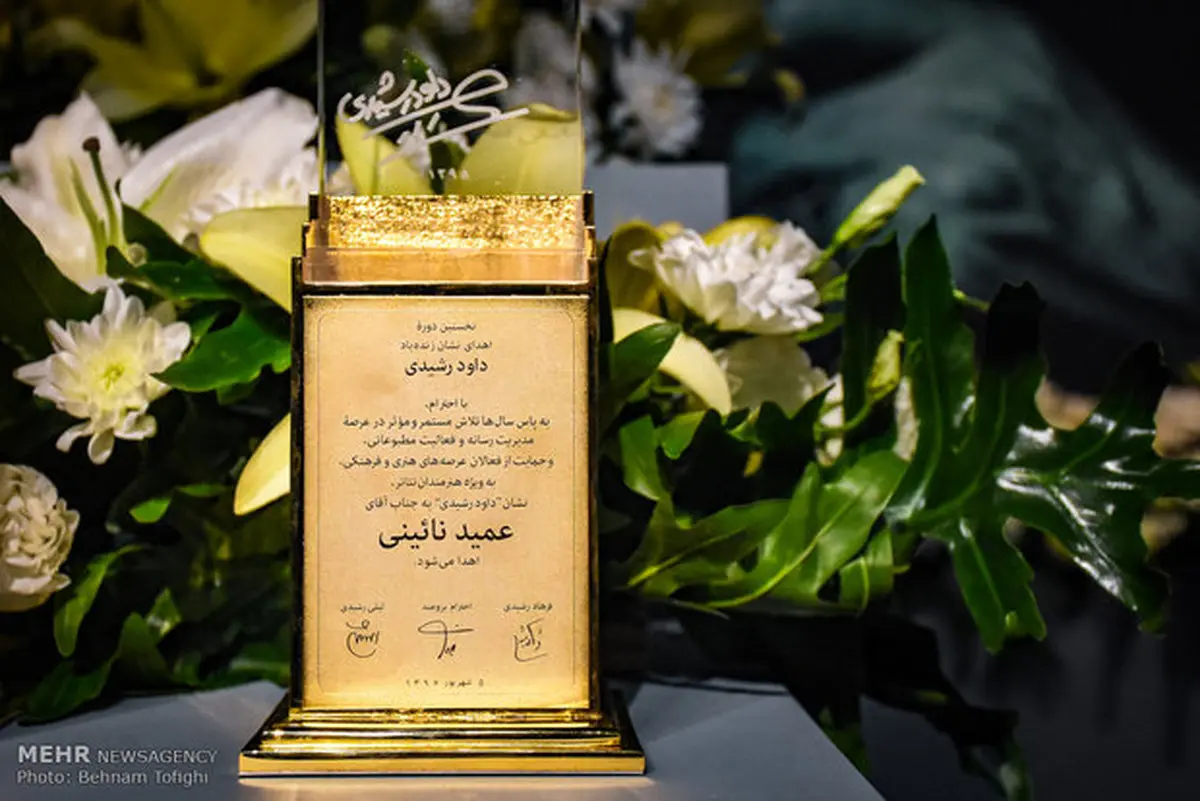 داود رشیدی
نخستین دورهٔ
اهدای نشان زنده‌یاد
داود رشیدی
با احترام،
به پاس سال‌ها تلاش مستمر و مؤثر در عرصهٔ
مدیریت رسانه و فعالیت مطبوعاتی،
و حمایت از فعالان عرصه‌های هنری و فرهنگی،
به ویژه هنرمندان تئاتر،
نشان "داود رشیدی" به جناب آقای
عمید نائینی
اهدا می‌شود.
فرهاد رشیدی احترام برومند لیلی رشیدی
۵ شهریور ۱۳۹۶
MEHR NEWSAGENCY
Photo: Behnam Tofighi